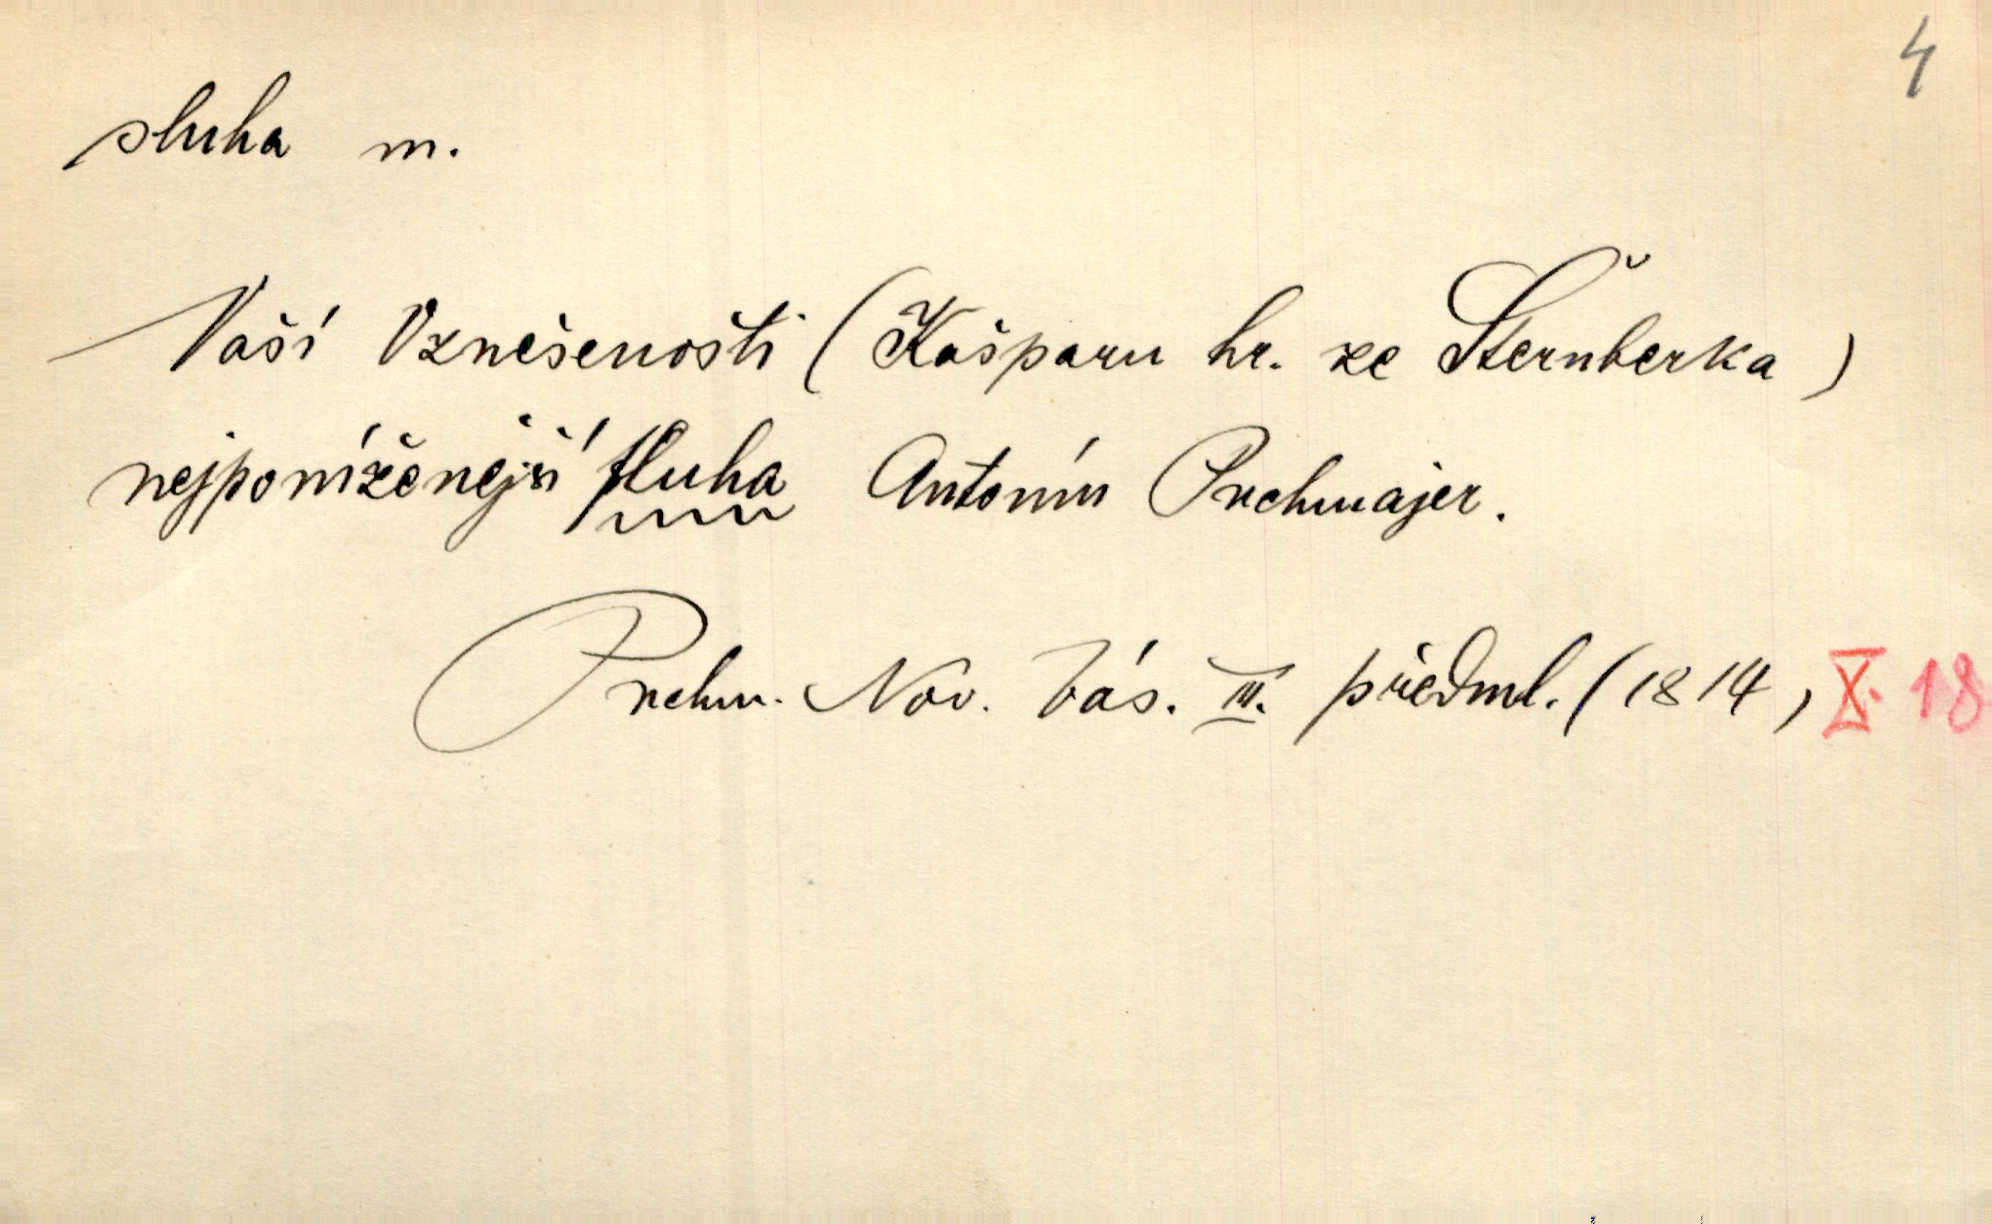 4
sluha m.
Vaší Vznešenosti (Kašparu hr. ze Šternberka)
nejponíženější sluha Antonín Puchmajer.
Puchm. Nov. bás. III. předml. (1814, X. 18